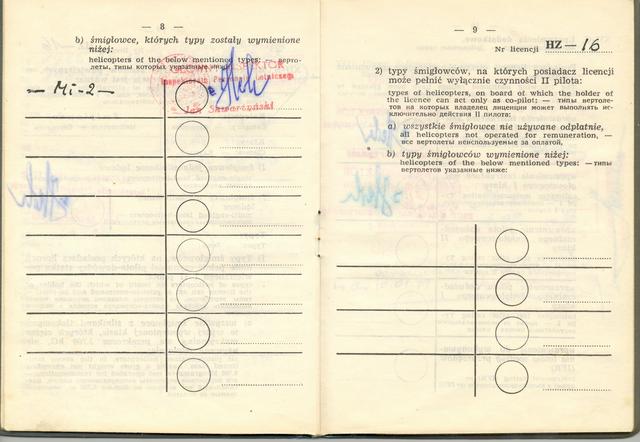 — 8 —
b) śmigłowce, których typy zostały wymienione
niżej:
helicopters of the below mentioned types: — верто-
леты, типы которых указанные ниже:
— Mi-2 —
— 9 —
Nr licencji HZ — 16
2) typy śmigłowców, na których posiadacz licencji
może pełnić wyłącznie czynności II pilota:
types of helicopters, on board of which the holder of
the licence can act only as co-pilot: — типы вертоле-
тов на которых владелец лиценции может выполнять ис-
ключительно действия II пилота:
a) wszystkie śmigłowce nie używane odpłatnie,
all helicopters not operated for remuneration, —
все вертолеты неиспользуемые за оплатой,
b) typy śmigłowców wymienione niżej:
helicopters of the below mentioned types: — типы
вертолетов указанные ниже: